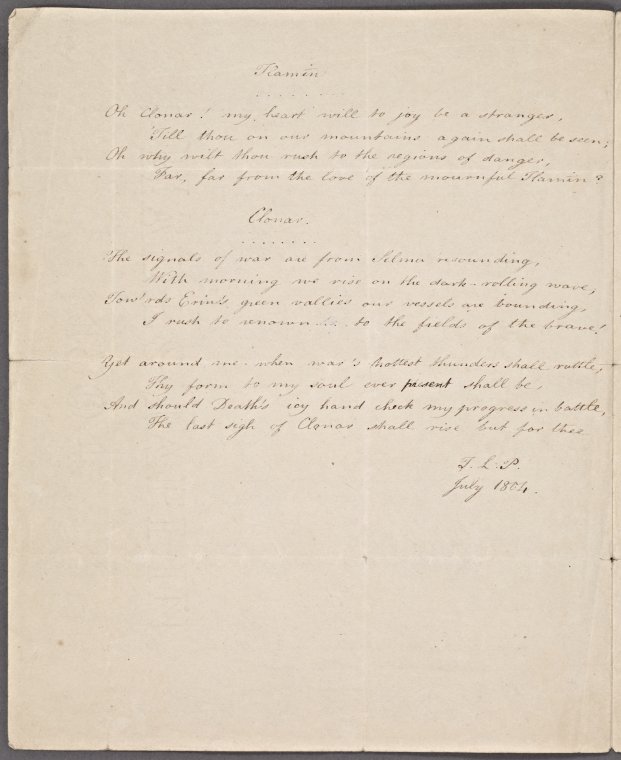 Flamin
. . . . . . . .
Oh Clonar! my heart will to joy be a stranger,
'Till thou on our mountains again shall be seen;
Oh why wilt thou rush to the regions of danger,
Far, far from the love of the mournful Flamin?
Clonar.
. . . . . . . .
The signals of war are from Selma resounding,
With morning we rise on the dark-rolling wave,
Tow'rds Erin's green vallies our vessels are bounding,
I rush to renown to the fields of the brave!
Yet around me when war's hottest thunders shall rattle,
Thy form to my soul ever present shall be,
And should Death's icy hand check my progress in battle,
The last sigh of Clonar shall rise but for thee
T. L. P.
July 1804.